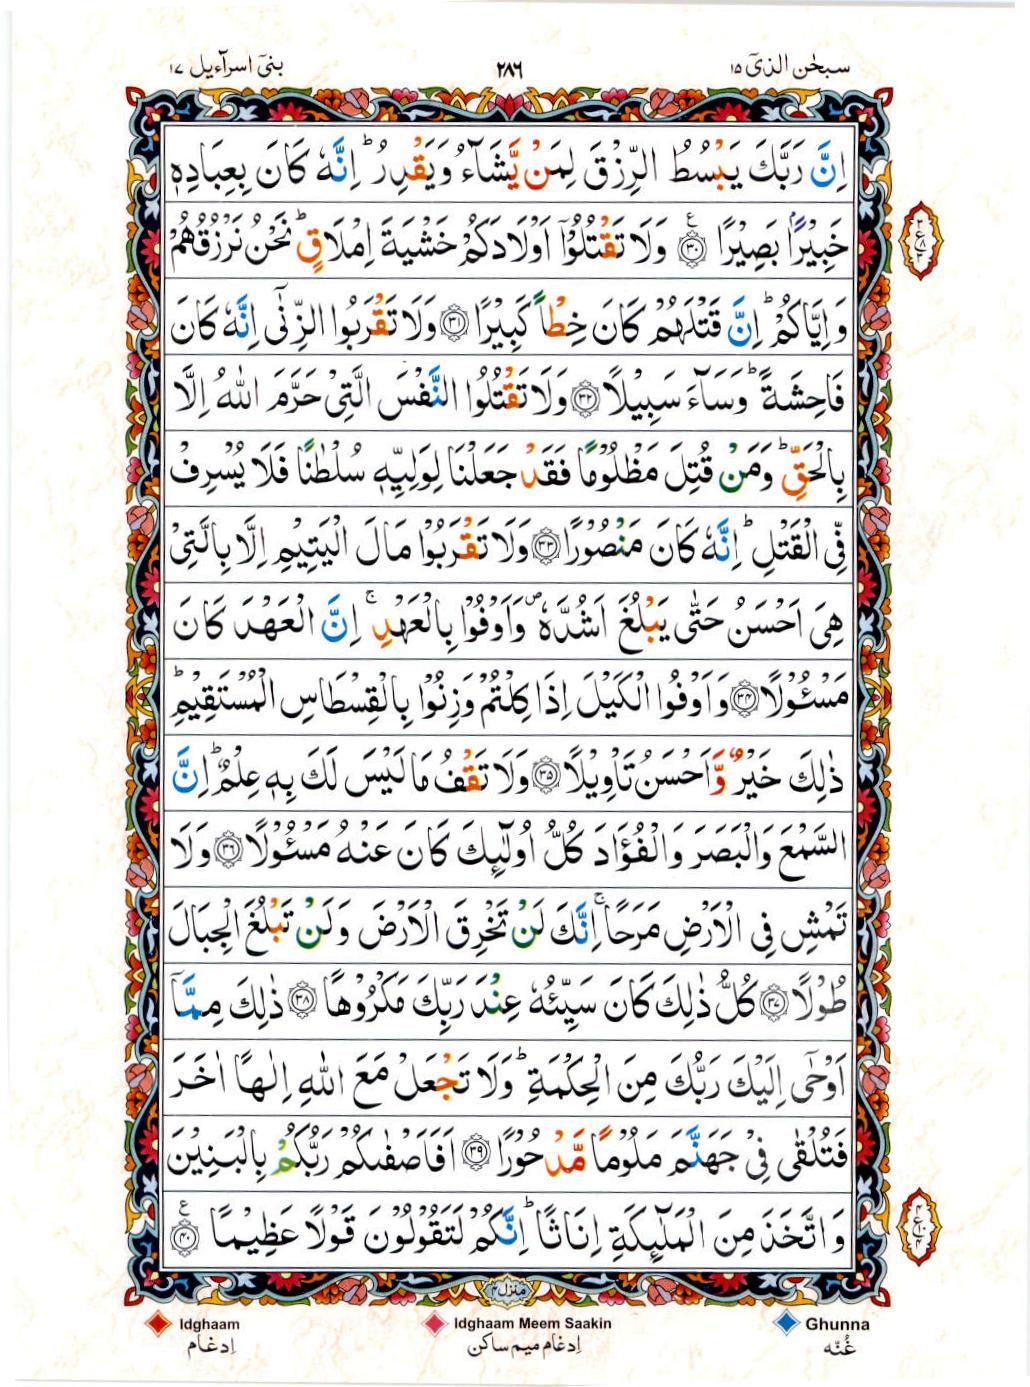 سبحٰن الذیٓ ۱۵
۲۸۶
بنیٓ اسرآءیل ۱۷
اِنَّ رَبَّكَ يَبْسُطُ الرِّزْقَ لِمَنْ يَّشَآءُ وَيَقْدِرُ ؕ اِنَّهٗ كَانَ بِعِبَادِهٖ
خَبِيْرًۢا بَصِيْرًا ﴿۳۰﴾ وَلَا تَقْتُلُوْۤا اَوْلَادَكُمْ خَشْيَةَ اِمْلَاقٍ ؕ نَحْنُ نَرْزُقُهُمْ
وَاِيَّاكُمْ ؕ اِنَّ قَتْلَهُمْ كَانَ خِطْاً كَبِيْرًا ﴿۳۱﴾ وَلَا تَقْرَبُوا الزِّنٰٓى اِنَّهٗ كَانَ
فَاحِشَةً ؕ وَسَآءَ سَبِيْلًا ﴿۳۲﴾ وَلَا تَقْتُلُوا النَّفْسَ الَّتِيْ حَرَّمَ اللّٰهُ اِلَّا
بِالْحَقِّ ؕ وَمَنْ قُتِلَ مَظْلُوْمًا فَقَدْ جَعَلْنَا لِوَلِيِّهٖ سُلْطٰنًا فَلَا يُسْرِفْ
فِّي الْقَتْلِ ؕ اِنَّهٗ كَانَ مَنْصُوْرًا ﴿۳۳﴾ وَلَا تَقْرَبُوْا مَالَ الْيَتِيْمِ اِلَّا بِالَّتِيْ
هِيَ اَحْسَنُ حَتّٰى يَبْلُغَ اَشُدَّهٗ ۪ وَاَوْفُوْا بِالْعَهْدِ ۚ اِنَّ الْعَهْدَ كَانَ
مَسْـُٔوْلًا ﴿۳۴﴾ وَاَوْفُوا الْكَيْلَ اِذَا كِلْتُمْ وَزِنُوْا بِالْقِسْطَاسِ الْمُسْتَقِيْمِ ؕ
ذٰلِكَ خَيْرٌ وَّاَحْسَنُ تَاْوِيْلًا ﴿۳۵﴾ وَلَا تَقْفُ مَا لَيْسَ لَكَ بِهٖ عِلْمٌ ؕ اِنَّ
السَّمْعَ وَالْبَصَرَ وَالْفُؤَادَ كُلُّ اُولٰٓئِكَ كَانَ عَنْهُ مَسْـُٔوْلًا ﴿۳۶﴾ وَلَا
تَمْشِ فِي الْاَرْضِ مَرَحًا ۚ اِنَّكَ لَنْ تَخْرِقَ الْاَرْضَ وَلَنْ تَبْلُغَ الْجِبَالَ
طُوْلًا ﴿۳۷﴾ كُلُّ ذٰلِكَ كَانَ سَيِّئُهٗ عِنْدَ رَبِّكَ مَكْرُوْهًا ﴿۳۸﴾ ذٰلِكَ مِمَّاۤ
اَوْحٰۤى اِلَيْكَ رَبُّكَ مِنَ الْحِكْمَةِ ؕ وَلَا تَجْعَلْ مَعَ اللّٰهِ اِلٰهًا اٰخَرَ
فَتُلْقٰى فِيْ جَهَنَّمَ مَلُوْمًا مَّدْحُوْرًا ﴿۳۹﴾ اَفَاَصْفٰىكُمْ رَبُّكُمْ بِالْبَنِيْنَ
وَاتَّخَذَ مِنَ الْمَلٰٓئِكَةِ اِنَاثًا ؕ اِنَّكُمْ لَتَقُوْلُوْنَ قَوْلًا عَظِيْمًا ﴿۴۰﴾
منزل ۴
Ghunna
Idghaam Meem Saakin
Idghaam
غُنّه
اِدغام میم ساکن
اِدغام